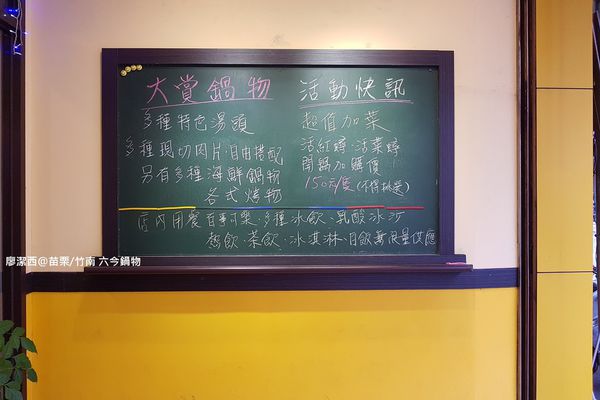 大賞鍋物
多種特色湯頭
多種現切肉片·自由搭配
另有多種海鮮鍋物
各式烤物
活動快訊
超值加菜
活紅蟳·活菜蟳
開鍋加購價
150元/隻(不得挑選)
店內用餐百事可樂·多種冰飲·乳酸冰沙
熱飲·茶飲·冰淇淋·自飲無限量供應
廖潔西@苗栗/竹南 六今鍋物